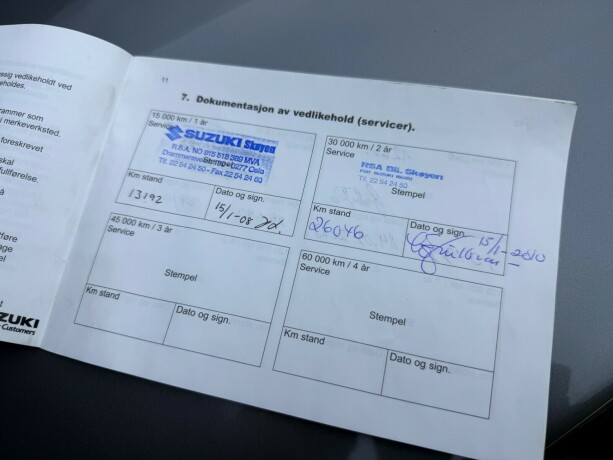 ssig vedlikeholdt ved
eholdes.
rammer som
i merkeverksted.
foreskrevet
skal
fullførelse.
å
tføre
age
t
UZUKI
Customers
11
7. Dokumentasjon av vedlikehold (servicer).
15 000 km / 1 år
Service
SUZUKI Skøyen
R.S.A. NO 915 518 389 MVA
Stempel
0277 Oslo
Tlf. 22 54 24 50 - Fax 22 54 24 60
Km stand
13192
Dato og sign.
15/1-08
30 000 km / 2 år
Service
RSA BIL Skøyen
Tlf. 22 54 24 50
Stempel
Km stand
26046
Dato og sign.
15/1-2010
45 000 km / 3 år
Service
Stempel
Km stand
Dato og sign.
60 000 km / 4 år
Service
Stempel
Km stand
Dato og sign.